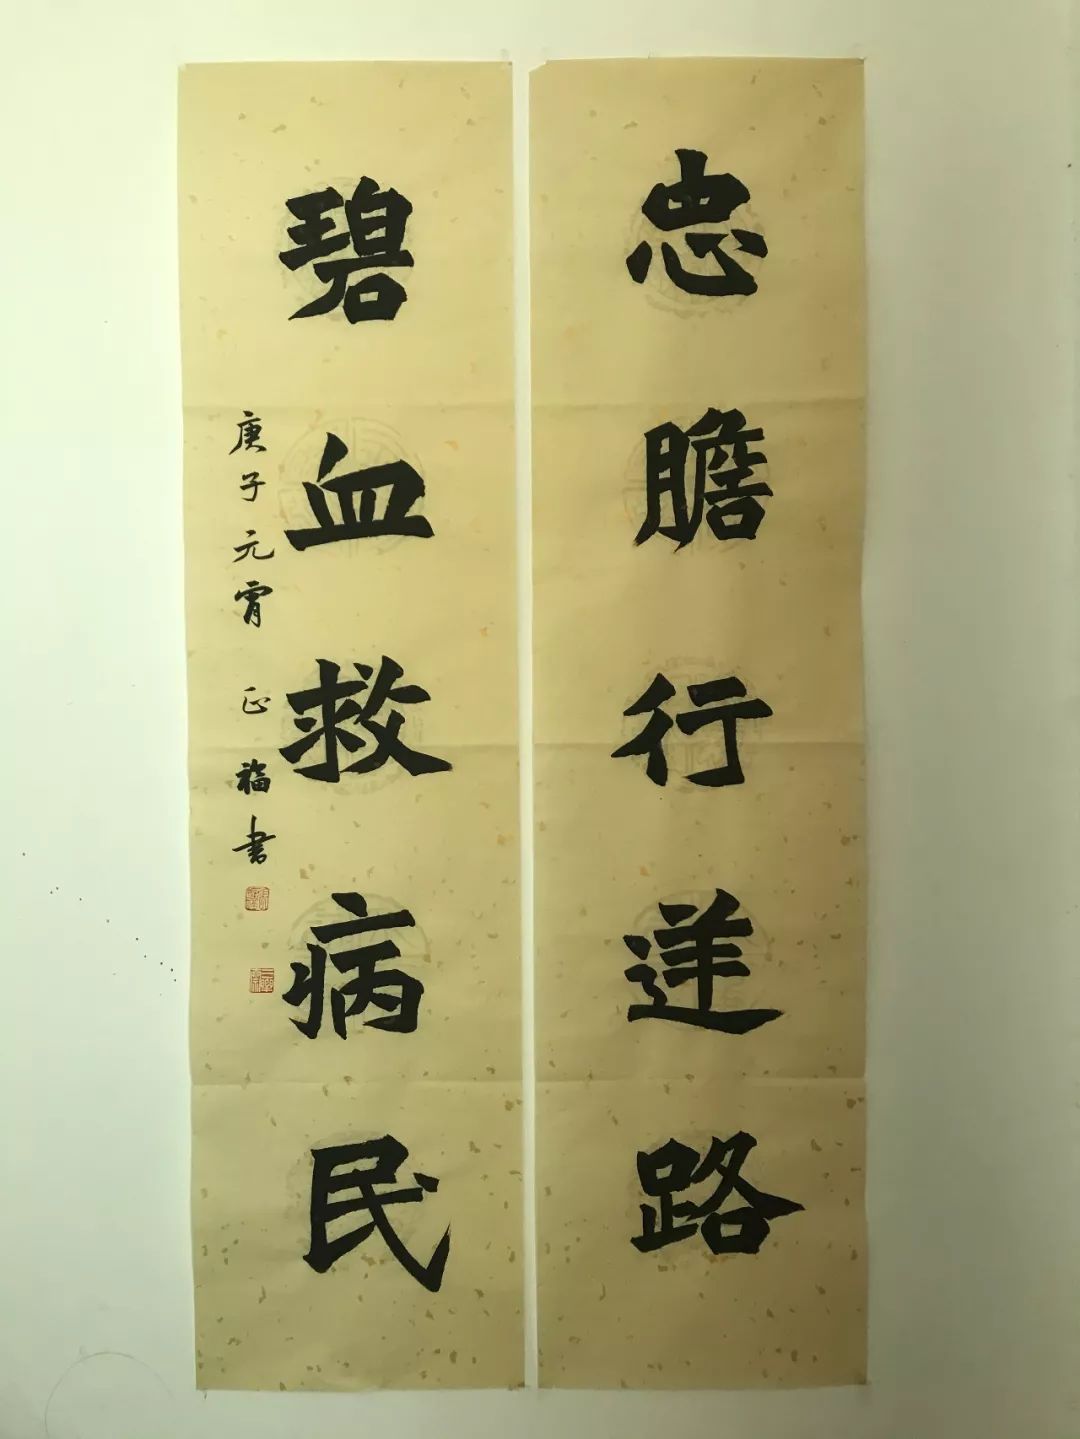 忠膽行逆路
碧血救病民
庚子元宵 正福書